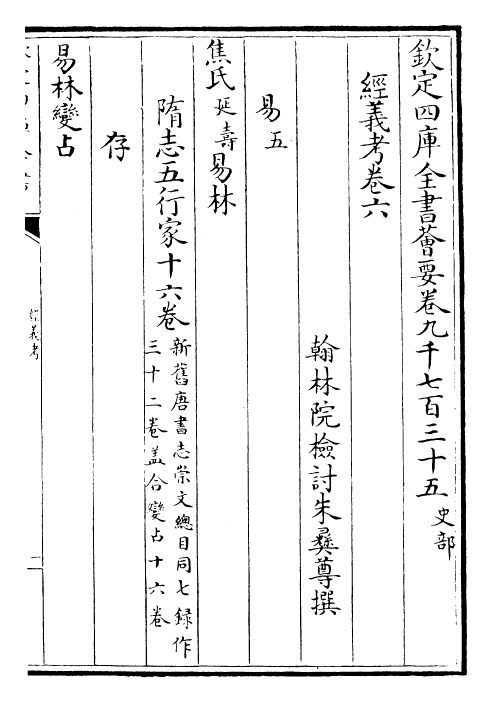 欽定四庫全書薈要卷九千七百三十五 史部
經義考卷六
翰林院檢討朱彝尊撰
易五
焦氏延壽易林
隋志五行家十六卷 新舊唐書志崇文總目同七録作
三十二卷葢合變占十六卷
存
易林變占
經義考